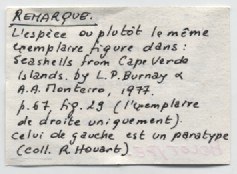 REMARQUE.
L'espèce ou plutôt le même
exemplaire figure dans:
Seashells from Cape Verde
Islands. by L.P. Burnay &
A.A. Monteiro, 1977.
p. 67, fig. 29 (l'exemplaire
de droite uniquement).
celui de gauche est un paratype
(coll. R. Houart)